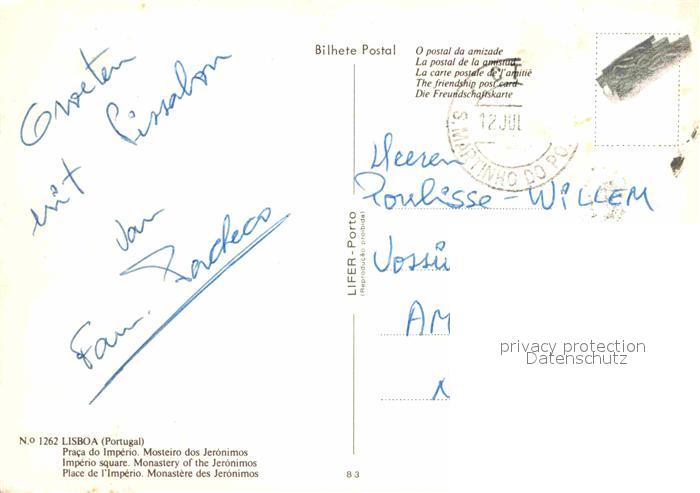 Bilhete Postal
O postal da amizade
La postal de la amistad
La carte postale de l'amitié
The friendship post card
Die Freundschaftskarte
12 JUL
S. MARTINHO DO PO
Groeten
uit Lissabon
van
Fam. Pacheco
Heeren
Poulisse - WILLEM
Vossiu
AM
LIFER - Porto
(Reprodução proibida)
privacy protection
Datenschutz
N.º 1262 LISBOA (Portugal)
Praça do Império. Mosteiro dos Jerónimos
Império square. Monastery of the Jerónimos
Place de l'Império. Monastère des Jerónimos
83